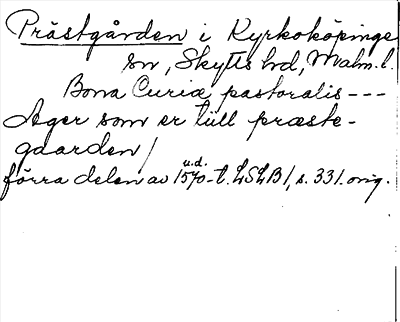 Prästgården i Kyrkoköpinge
sn, Skytts hd, Malm. l.
Bona Curiæ pastoralis ---
Ager som er till præste-
gaarden /
u.d.
förra delen av 1570-t. LSLB1, s. 331. orig.